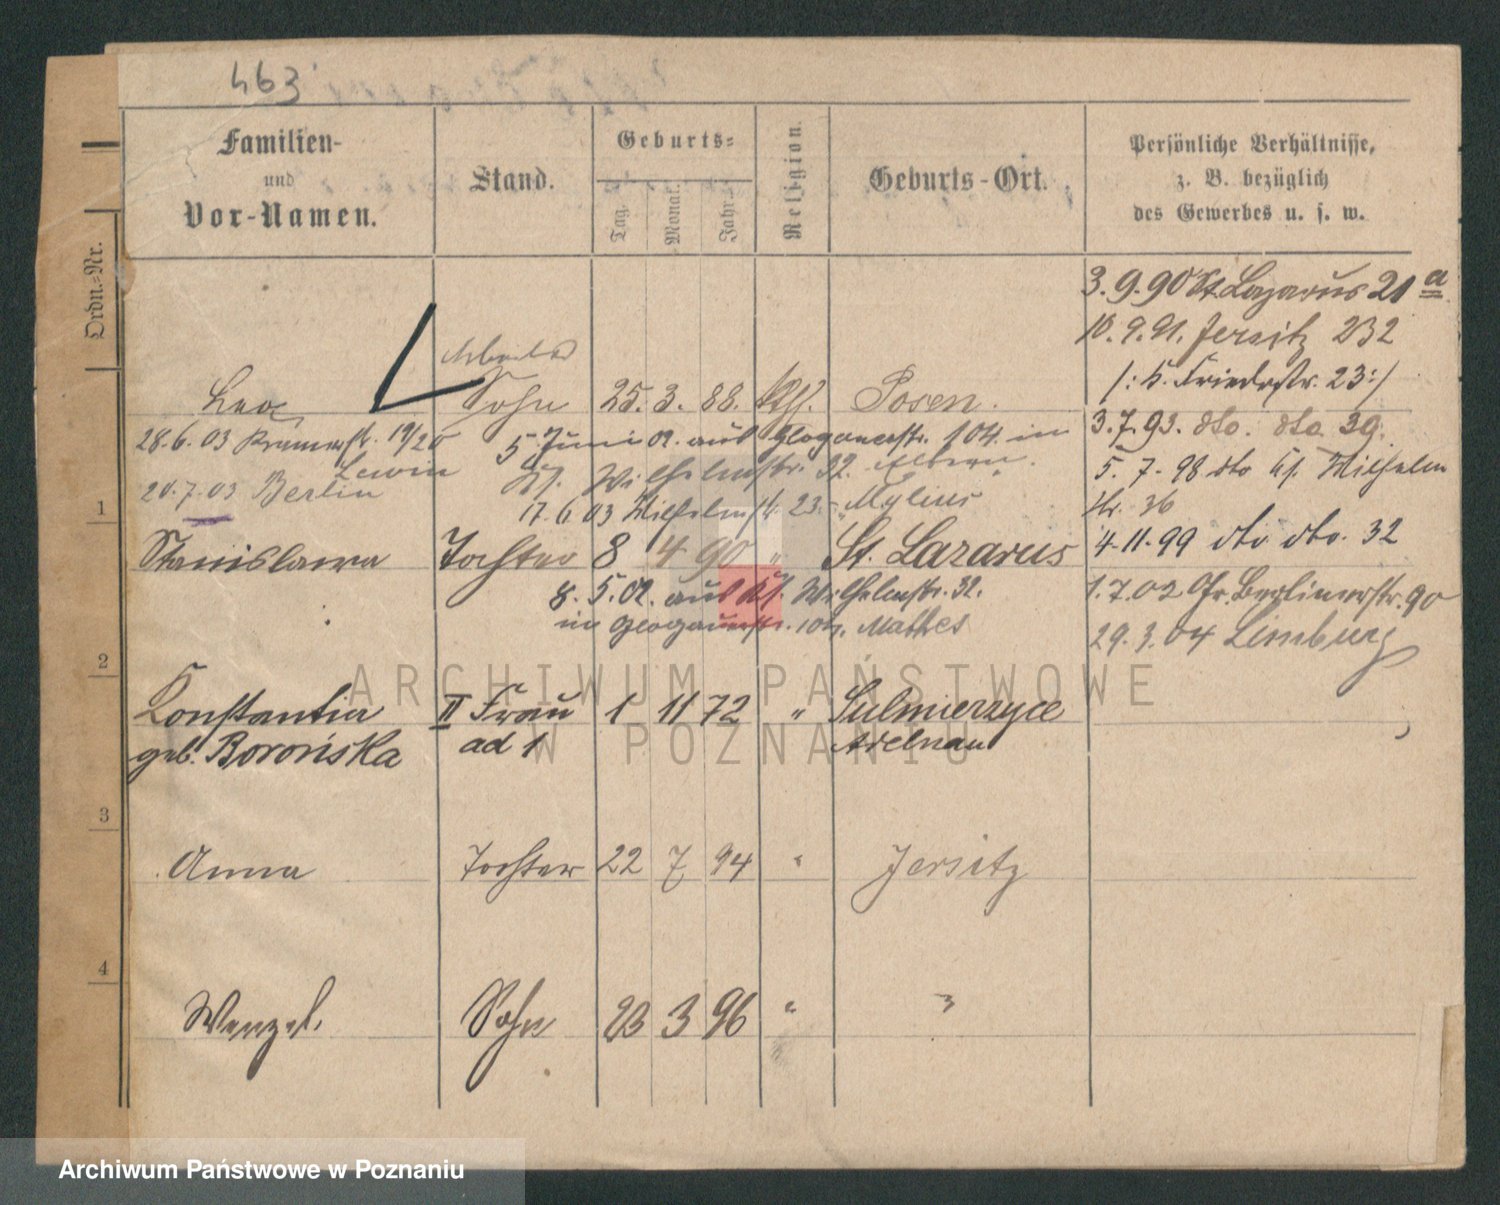 463
Familien-
und
Vor-Namen.
Stand.
Geburts-
Tag.
Monat.
Jahr.
Religion.
Geburts-Ort.
Persönliche Verhältnisse,
z. B. bezüglich
des Gewerbes u. s. w.
Ordn.-Nr.
3.9.90 St. Lazarus 21 a
10.9.91. Jersitz 232
/: K. Friedrstr. 23 :/
Arbeiter
Leo Sohn 25. 3. 88. Posen.
3.7.93. dto. dto 39.
28.6.03 Kramerstr. 19/20
Lewin
5 Juni 02. aus Glogauerstr. 104. in
Kl. Wilhelmstr. 32.
5. 7. 98 dto Kl. Wilhelm
str. 36
20.7.03 Berlin
17.6.03 Wilhelmstr. 23. Mylius
1
Stanislawa Tochter 8 4 90 " St. Lazarus
4.11.99 dto dto. 32
8. 5. 02. aus Kl. Wilhelmstr. 32.
in Glogauerstr. 104. Mathes
1.7.02 Gr. Berlinerstr. 90
29.3.04 Limburg
2
ARCHIWUM PAŃSTWOWE
W POZNANIU
Konstantia II Frau 1 11 72 " Sulmierzyce
geb. Borońska ad 1 Adelnau
3
Anna Tochter 22 7 94 " Jersitz
4
Wenzel. Sohn 23 3 96 " "
Archiwum Państwowe w Poznaniu